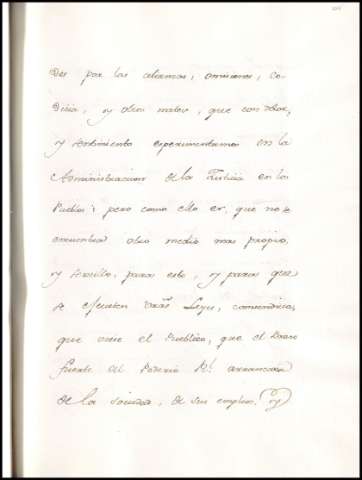 des por las alarmas, omisiones, co-
dicia, y otros males, que con dolor,
y sentimiento experimentamos en la
Administracion de la Justicia en los
Pueblos; pero como ello es, que no se
encuentra otro medio mas propio,
y sencillo, para esto, y para que
se ejecuten Leyes,
que viese el Publico, que el Brazo
fuerte del Poderio Rl. arrancaba
de la sociedad, de sus empleos, y